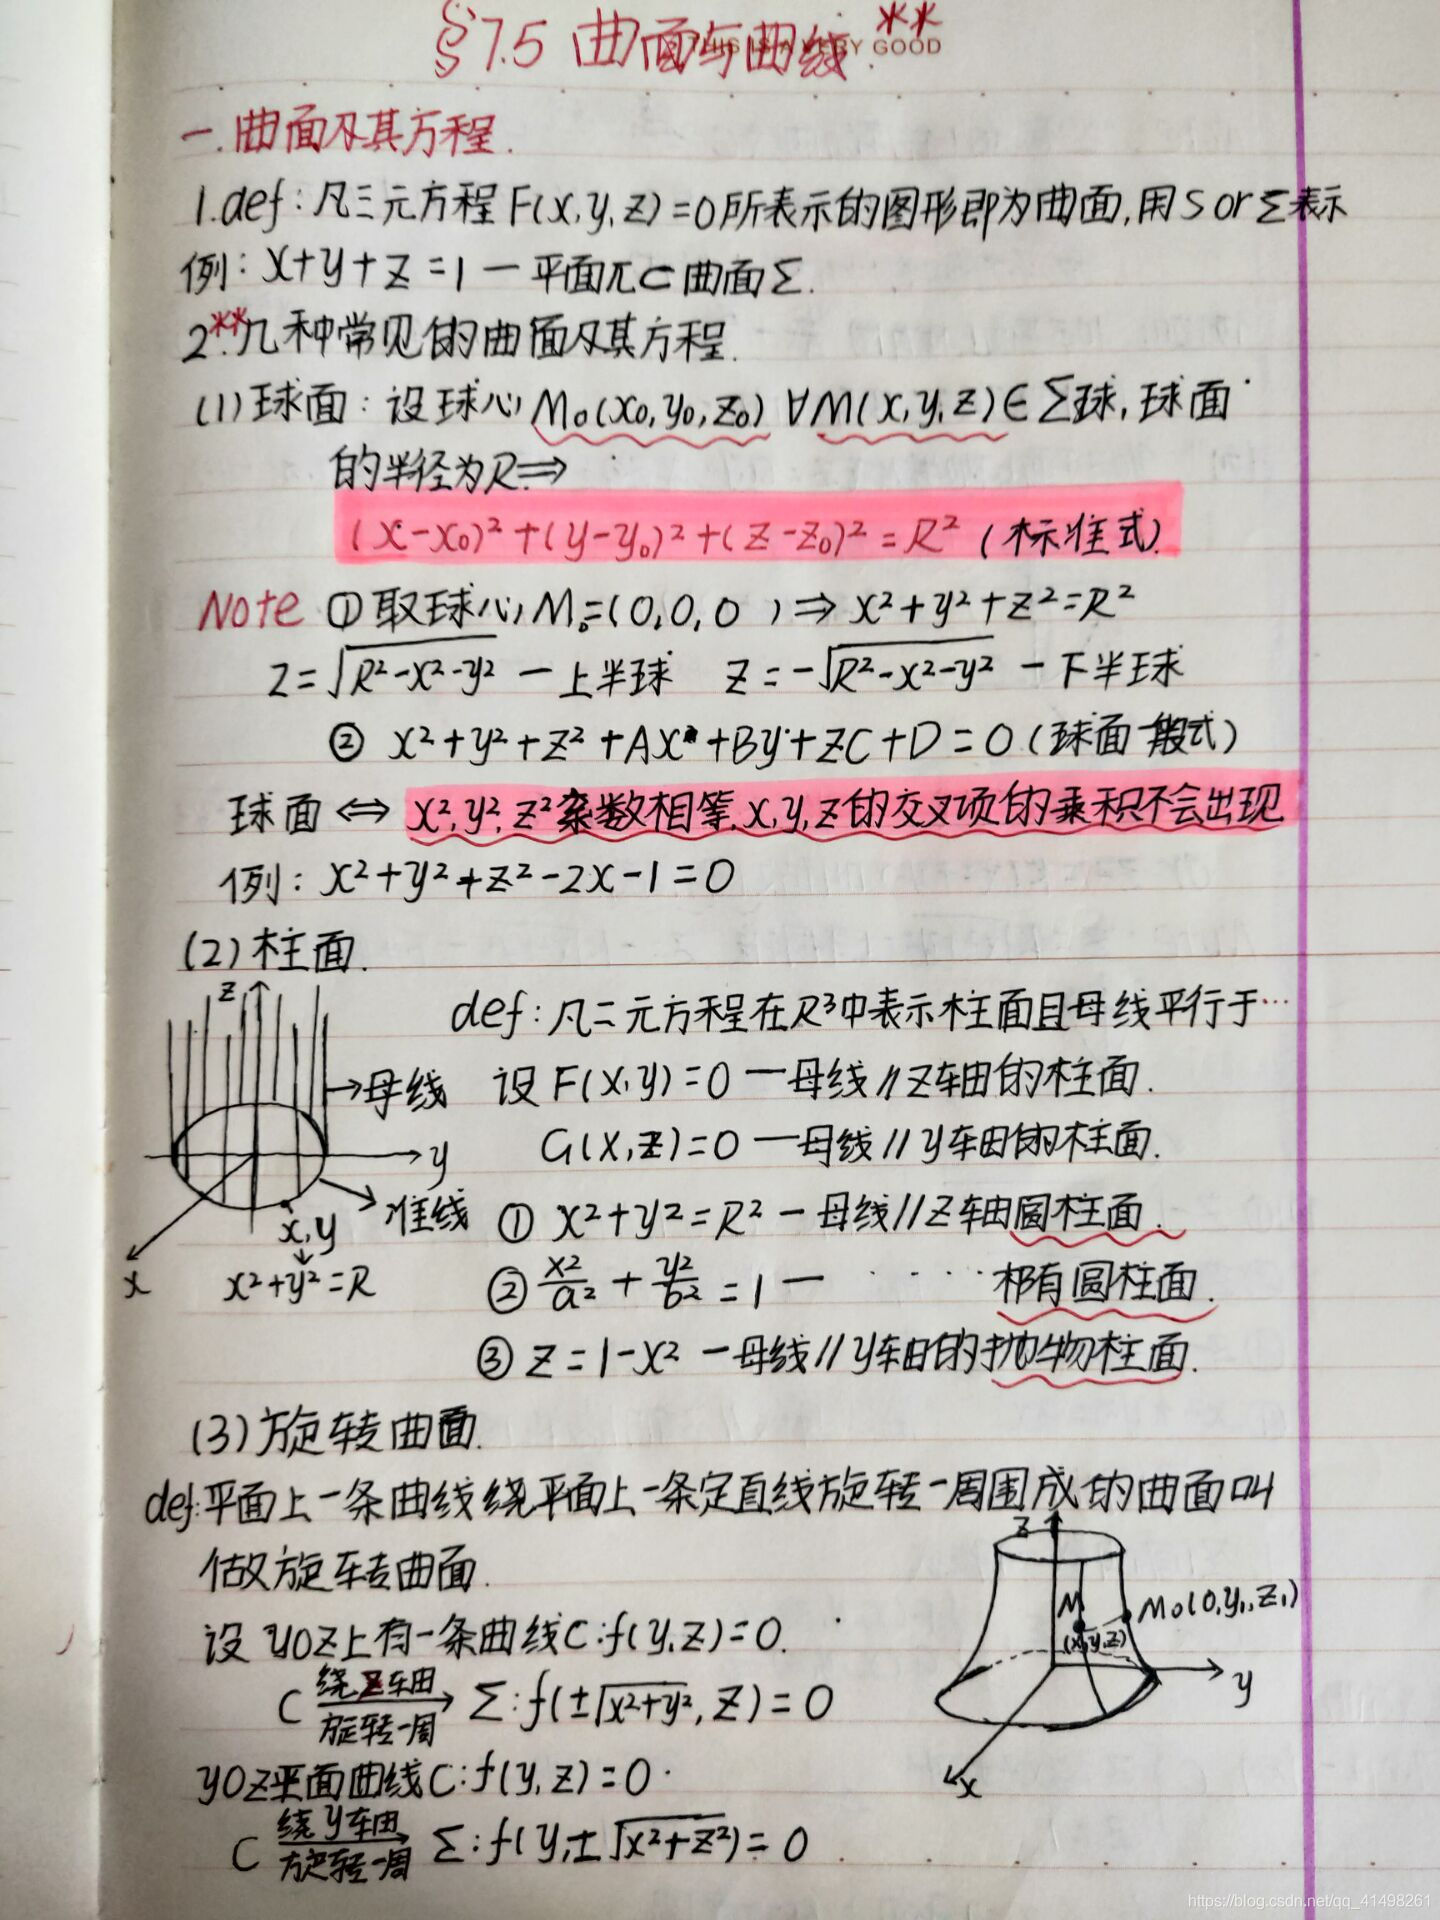 §7.5 曲面与曲线 **
THIS IS A VERY GOOD
一.曲面及其方程.
1.def:凡三元方程F(x,y,z)=0所表示的图形即为曲面,用S or Σ表示
例:x+y+z=1—平面π⊂曲面Σ.
2.**几种常见的曲面及其方程.
(1)球面:设球心M₀(x₀,y₀,z₀) ∀M(x,y,z)∈Σ球,球面
的半径为R⇒
(x-x₀)²+(y-y₀)²+(z-z₀)²=R²(标准式)
Note ①取球心M₀=(0,0,0)⇒x²+y²+z²=R²
z=√(R²-x²-y²) —上半球 z=-√(R²-x²-y²) —下半球
② x²+y²+z²+Ax+By+zC+D=0(球面一般式)
球面⇔x²,y²,z²系数相等,x,y,z的交叉项的乘积不会出现
例:x²+y²+z²-2x-1=0
(2)柱面.
def:凡二元方程在R³中表示柱面且母线平行于…
设F(x,y)=0—母线//z轴的柱面.
G(x,z)=0—母线//y轴的柱面.
z
→母线
y
准线
x,y
x
x²+y²=R
① x²+y²=R²—母线//z轴圆柱面.
② x²/a²+y²/b²=1— · · · · ·圆柱面.
③ z=1-x²—母线//y轴的抛物柱面.
(3)旋转曲面.
def:平面上一条曲线绕平面上一条定直线旋转一周围成的曲面叫
做旋转曲面.
设yoz上有一条曲线C:f(y,z)=0.
C 绕z轴 旋转一周 → Σ:f(±√(x²+y²),z)=0
z
M
M₀(0,y₁,z₁)
(x,y,z)
y
x
yoz平面曲线C:f(y,z)=0.
C 绕y轴 旋转一周 → Σ:f(y,±√(x²+z²))=0
https://blog.csdn.net/qq_41498261